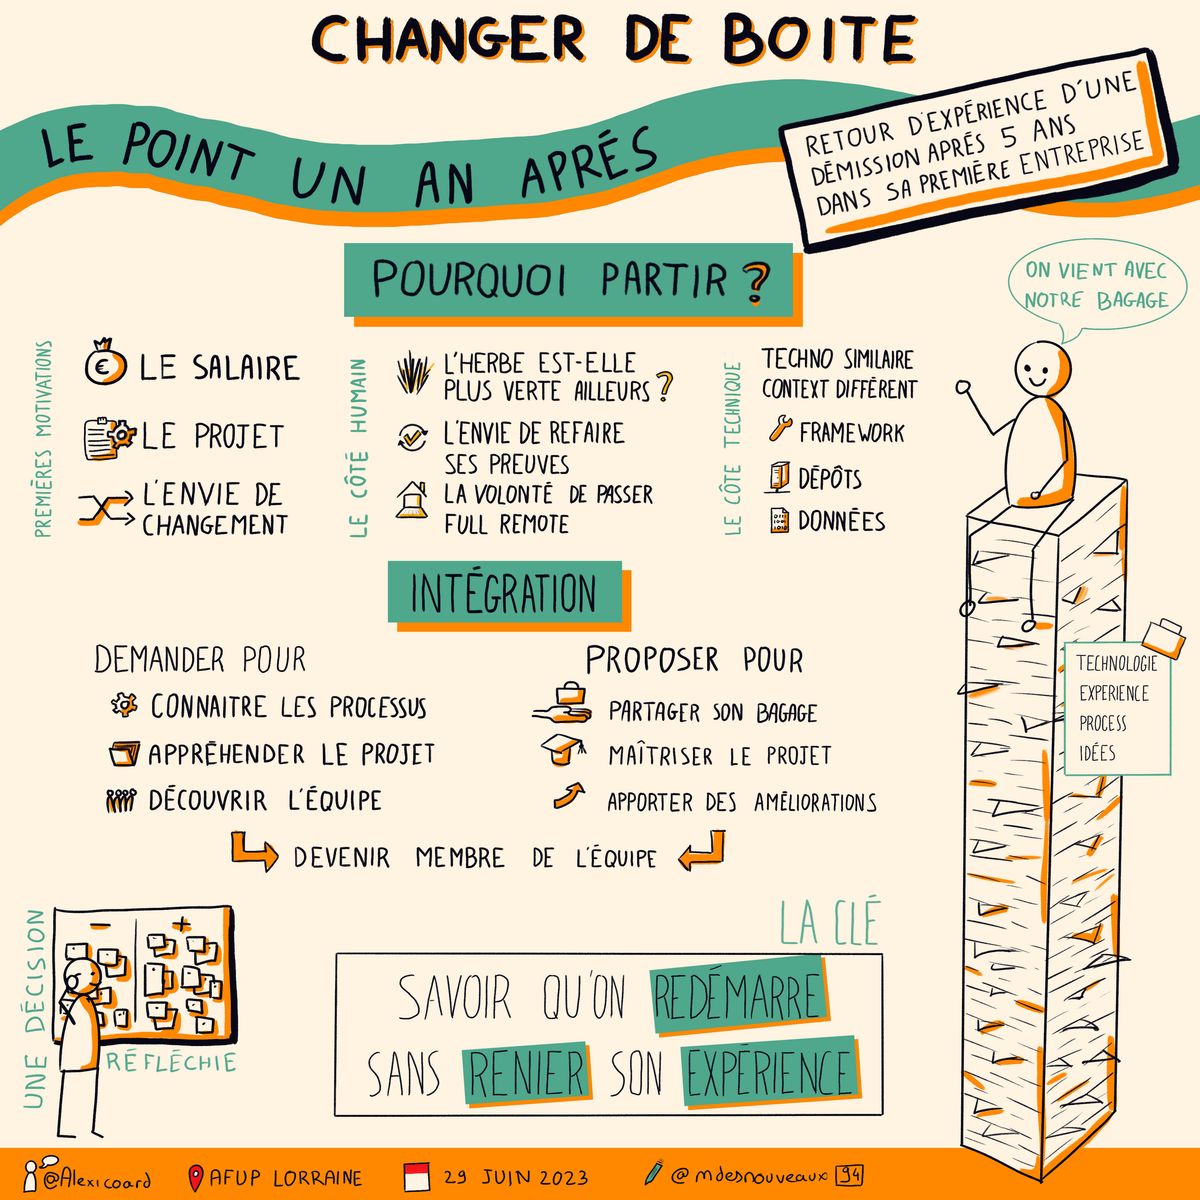 CHANGER DE BOITE
LE POINT UN AN APRÉS
RETOUR D'EXPÉRIENCE D'UNE
DÉMISSION APRÉS 5 ANS
DANS SA PREMIÈRE ENTREPRISE
POURQUOI PARTIR ?
ON VIENT AVEC
NOTRE BAGAGE
PREMIÈRES MOTIVATIONS
€
LE SALAIRE
LE PROJET
L'ENVIE DE
CHANGEMENT
LE CÔTÉ HUMAIN
L'HERBE EST-ELLE
PLUS VERTE AILLEURS ?
L'ENVIE DE REFAIRE
SES PREUVES
LA VOLONTÉ DE PASSER
FULL REMOTE
LE CÔTE TECHNIQUE
TECHNO SIMILAIRE
CONTEXT DIFFÉRENT
FRAMEWORK
DÉPÔTS
DONNÉES
INTÉGRATION
DEMANDER POUR
CONNAITRE LES PROCESSUS
APPRÉHENDER LE PROJET
DÉCOUVRIR L'ÉQUIPE
PROPOSER POUR
PARTAGER SON BAGAGE
MAÎTRISER LE PROJET
APPORTER DES AMÉLIORATIONS
DEVENIR MEMBRE DE L'ÉQUIPE
TECHNOLOGIE
EXPERIENCE
PROCESS
IDÉES
UNE DÉCISION
RÉFLÉCHIE
- +
LA CLÉ
SAVOIR QU'ON REDÉMARRE
SANS RENIER SON EXPÉRIENCE
@Alexicoard
AFUP LORRAINE
29 JUIN 2023
@mdesnouveaux 94